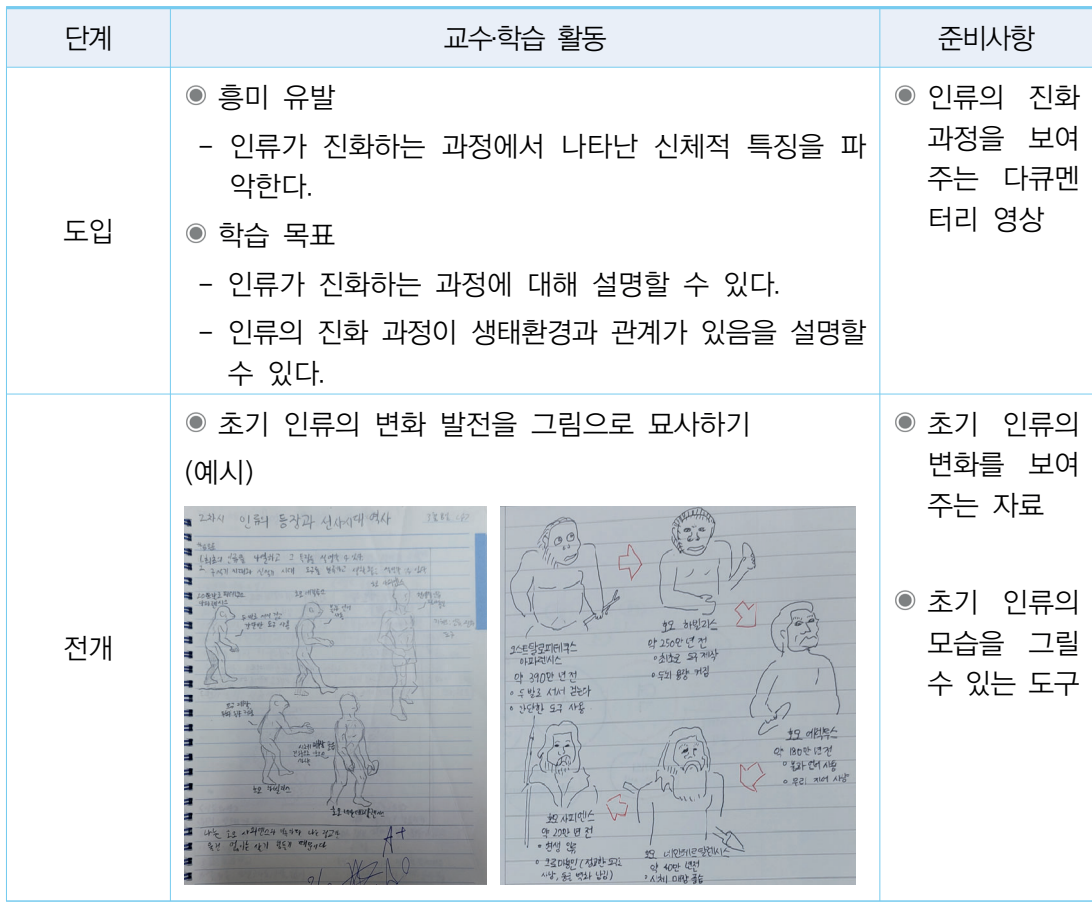 단계
교수·학습 활동
준비사항
도입
◉ 흥미 유발
- 인류가 진화하는 과정에서 나타난 신체적 특징을 파
악한다.
◉ 학습 목표
- 인류가 진화하는 과정에 대해 설명할 수 있다.
- 인류의 진화 과정이 생태환경과 관계가 있음을 설명할
수 있다.
◉ 인류의 진화
과정을 보여
주는 다큐멘
터리 영상
전개
◉ 초기 인류의 변화 발전을 그림으로 묘사하기
(예시)
인류의 등장과 선사시대 역사
호모 사피엔스
호모 하빌리스
A+
오스트랄로피테쿠스
아파렌시스
약 390만 년 전
◦ 두 발로 서서 걷는다
◦ 간단한 도구 사용
호모 하빌리스
약 250만 년 전
◦ 최초로 도구 제작
◦ 두뇌 용량 커짐
호모 에렉투스
약 180만 년 전
◦ 불과 언어 사용
◦ 무리 지어 사냥
호모 사피엔스
약 20만 년 전
◦ 현생 인류
◦ 크로마뇽인 (정교한 도구
사냥, 동굴 벽화 남김)
호모 네안데르탈렌시스
약 40만 년전
◦ 시체 매장 풍습
◉ 초기 인류의
변화를 보여
주는 자료
◉ 초기 인류의
모습을 그릴
수 있는 도구